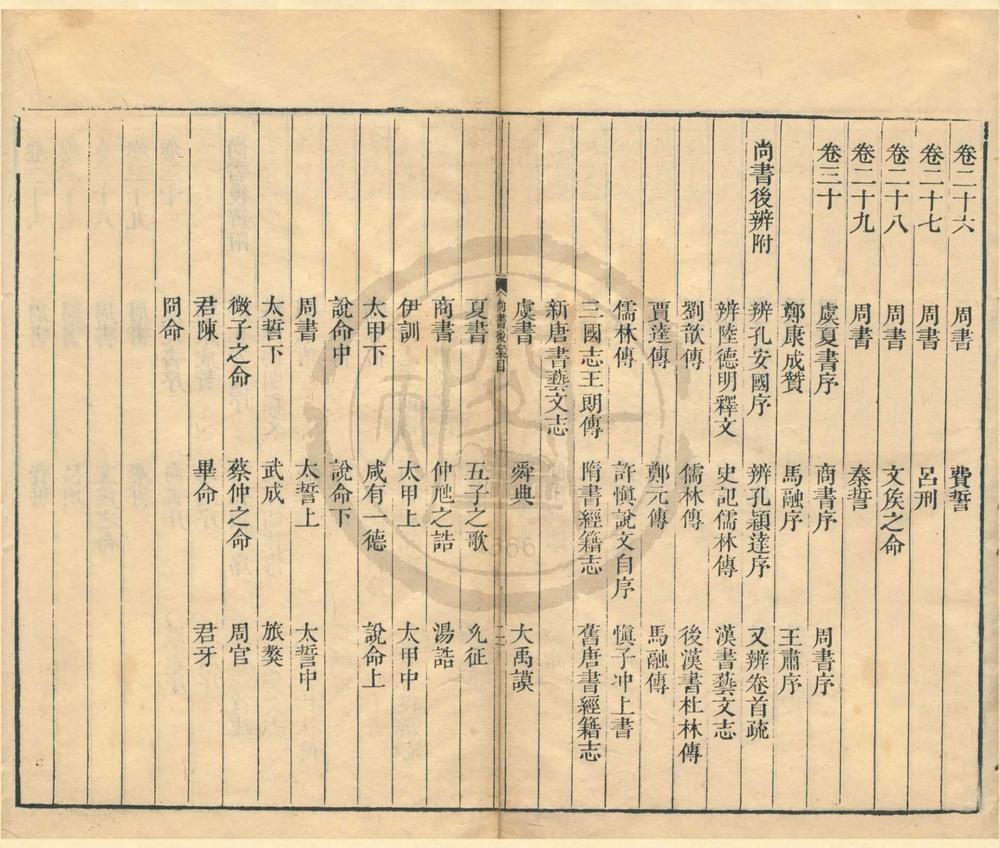 卷二十六 周書 費誓
卷二十七 周書 呂刑
卷二十八 周書 文侯之命
卷二十九 周書 秦誓
卷三十 虞夏書序 商書序 周書序
鄭康成贊 馬融序 王肅序
尚書後辨附 辨孔安國序 辨孔穎達序 又辨卷首疏
辨陸德明釋文 史記儒林傳 漢書藝文志
劉歆傳 儒林傳 後漢書杜林傳
賈逵傳 鄭元傳 馬融傳
儒林傳 許愼說文自序 愼子冲上書
三國志王朗傳 隋書經籍志 舊唐書經籍志
新唐書藝文志
虞書 舜典 大禹謨
尚書後案目 二
夏書 五子之歌 㣧征
商書 仲虺之誥 湯誥
伊訓 太甲上 太甲中
太甲下 咸有一德 說命上
說命中 說命下
周書 太誓上 太誓中
太誓下 武成 旅獒
微子之命 蔡仲之命 周官
君陳 畢命 君牙
冏命